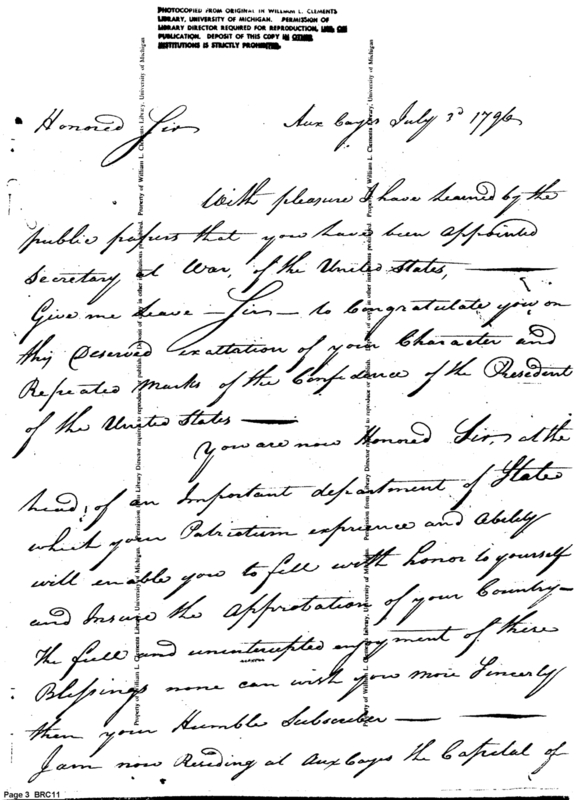 PHOTOCOPIED FROM ORIGINAL IN WILLIAM L. CLEMENTS
LIBRARY, UNIVERSITY OF MICHIGAN. PERMISSION OF
LIBRARY DIRECTOR REQUIRED FOR REPRODUCTION, USE, OR
PUBLICATION. DEPOSIT OF THIS COPY IN OTHER
INSTITUTIONS IS STRICTLY PROHIBITED.
Honored Sir
Aux Cayes July 3d 1796
With pleasure I have learned by the
public papers that you have been appointed
Secretary at War, of the United States,
Give me Leave — Sir — to Congratulate you on
this Deserved exaltation of your Character and
Repeated Marks of the Confidence of the President
of the United States —
You are now Honored Sir, at the
head, of an Important department of State
which your Patriotism exprience and Ability
will enable you to fill with honor to yourself
and Insure the Approbation of your Country —
The full and uninterupted enjoyment of these
Blessings none can wish you more Sincerly
then your Humble Subscriber —
I am now Residing at Aux Cayes the Capital of
Property of William L. Clements Library, University of Michigan. Permission from Library Director required to reproduce or publish. Deposit of copy in other institutions prohibited.
Page 3 BRC11